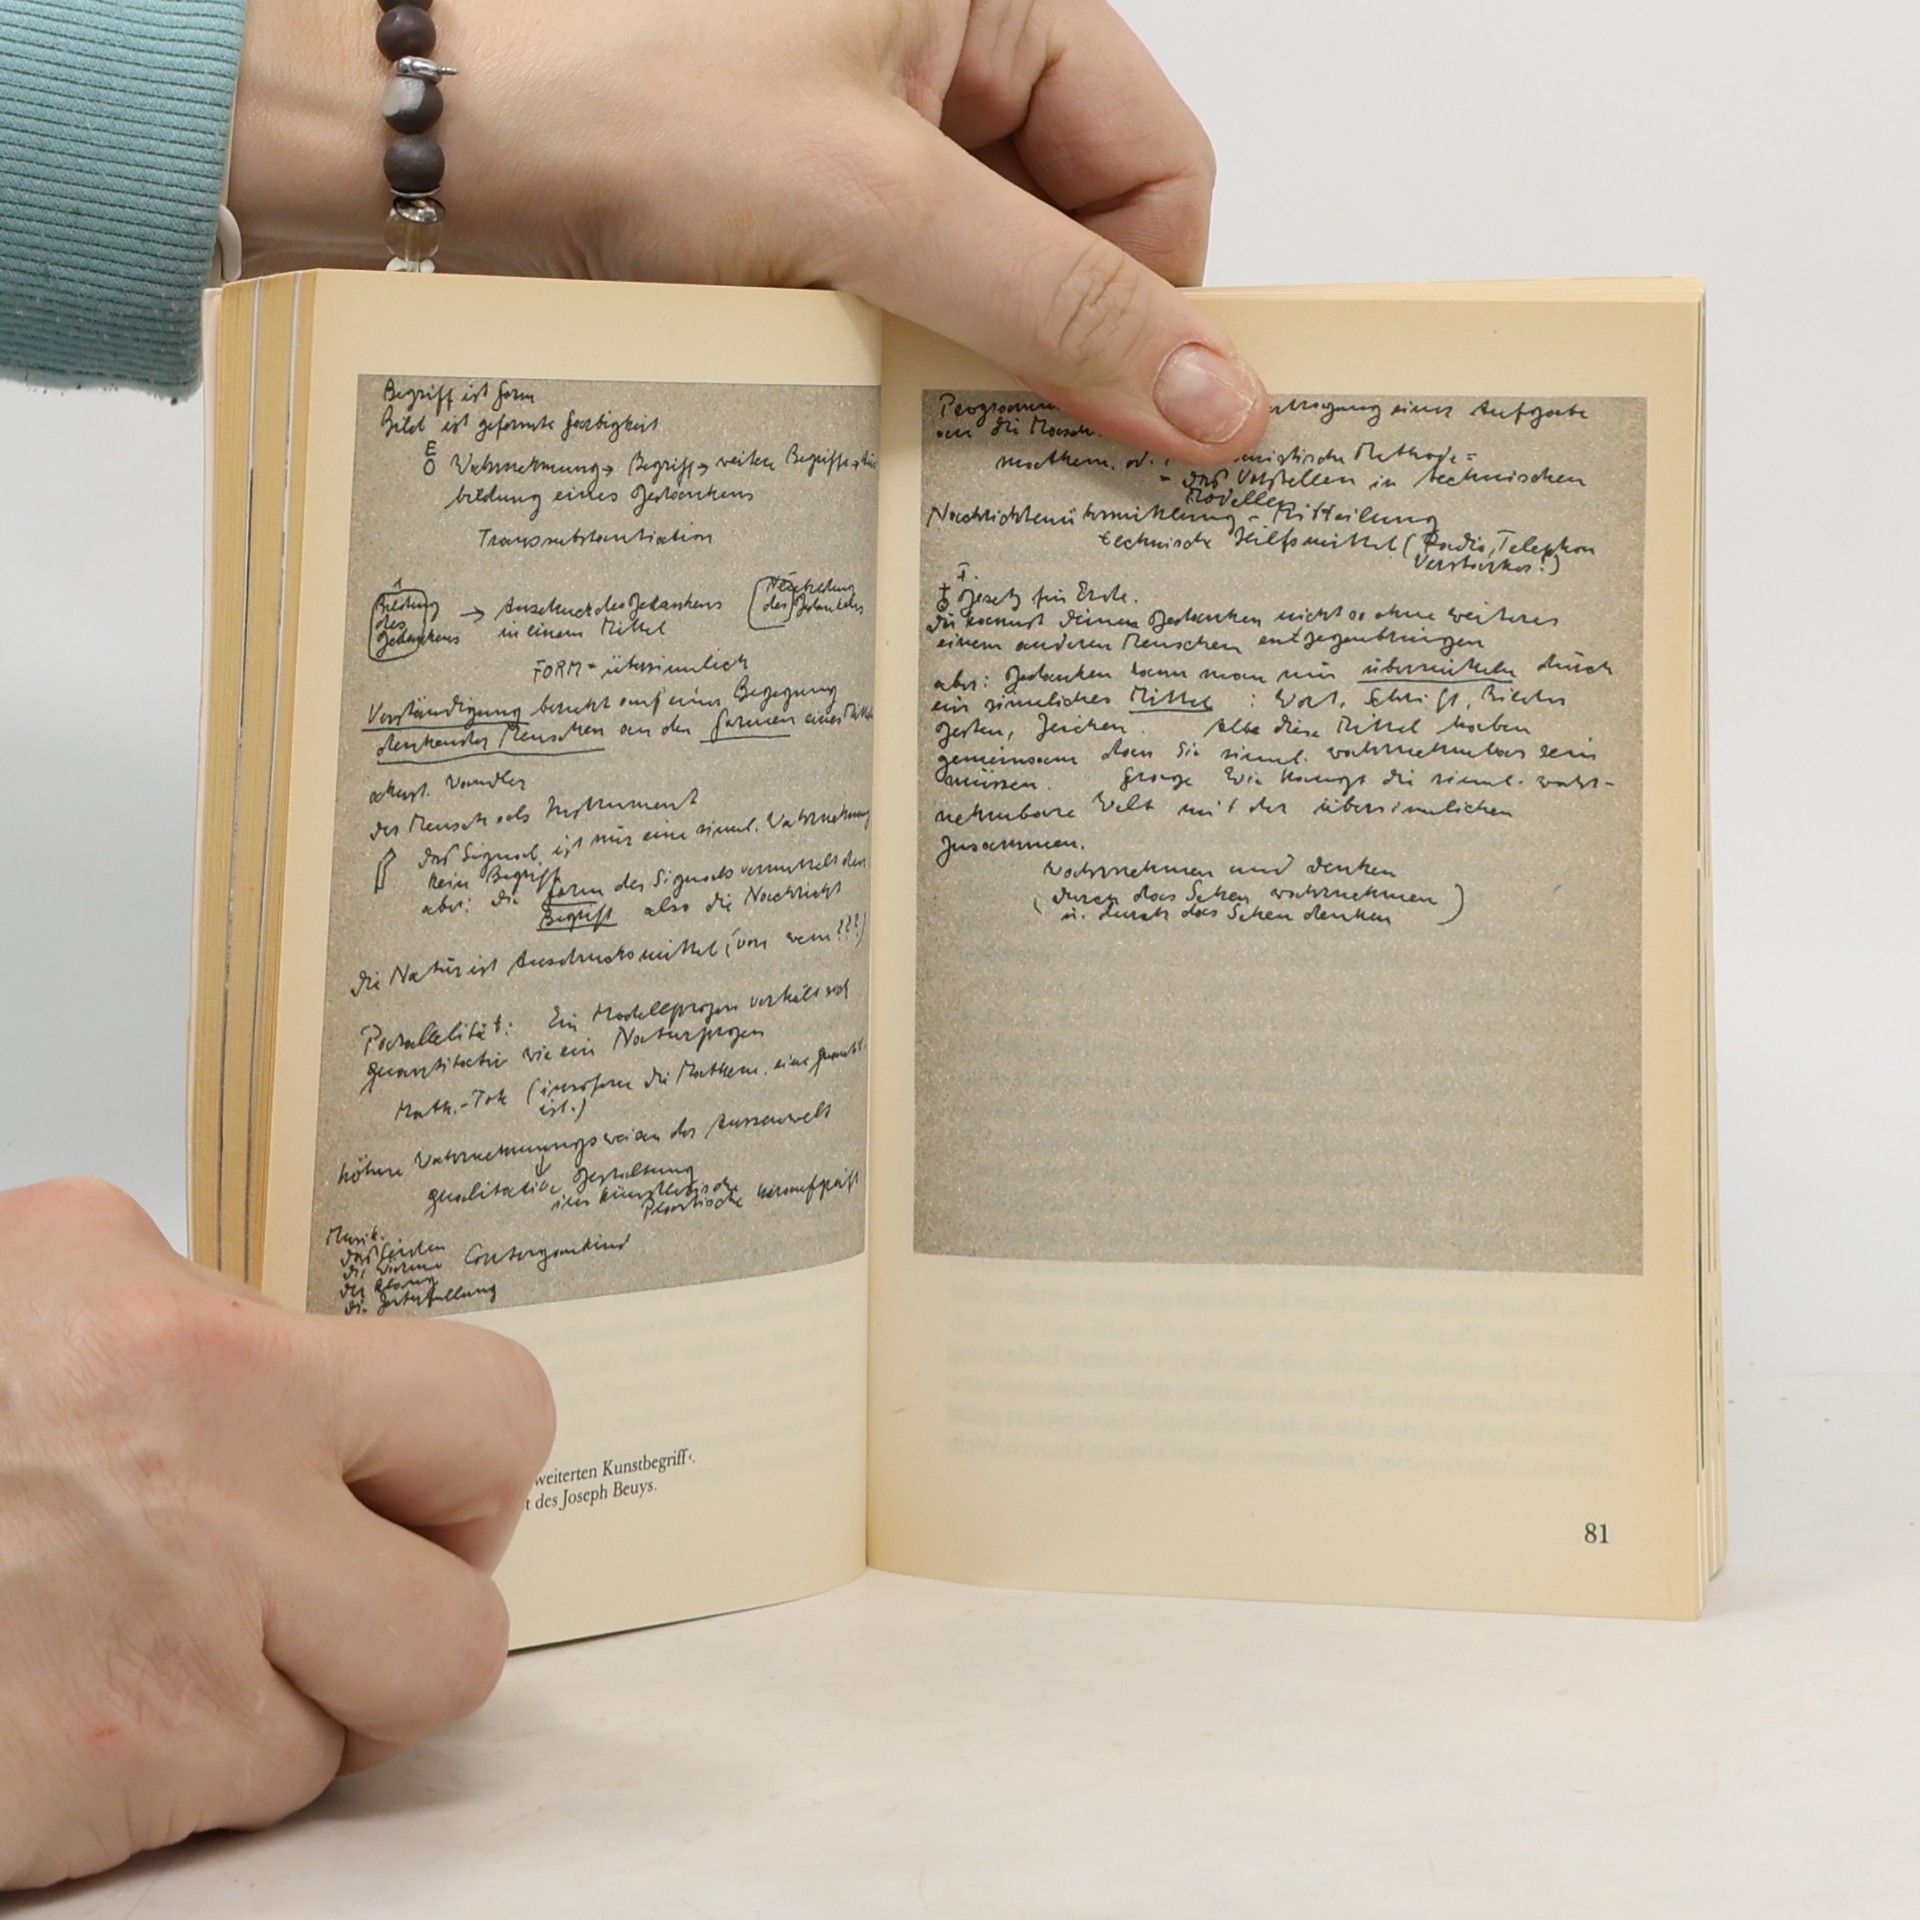 Begriff ist Form
Bild ist geformte Farbigkeit
E
O Wahrnehmung → Begriff → weitere Begriffe →
bildung eines Gedankens
Transsubstantiation
Bildung des Gedankens → Ausdruck des Gedankens in einem Mittel
des Gedankens
FORM = übersinnlich
Verständigung beruht auf einer Begegnung
denkender Menschen an den Formen eines
Wandler
der Mensch als Instrument
das Signal ist nur eine sinnl. Wahrnehmung
kein Begriff
aber: die Form des Signals vermittelt den
Begriff also die Nachricht
die Natur ist Ausdrucksmittel (von wem???)
Parallelität: Ein Modellprozess verhält sich
quantitativ wie ein Naturprozess
Math.-Tok (insofern die Mathem. eine
ist.)
höhere Wahrnehmungsweisen der Aussenwelt
qualitative Gestaltung
ins künstlerische
Plastische
Musik.
Contergankind
weiterten Kunstbegriff‹.
t des Joseph Beuys.
einer Aufgabe
an die
mathem. od.
Methode =
= das Vorstellen in technischen
Modellen
Nachrichtenübermittlung = Mitteilung
technische Hilfsmittel (Radio, Telephon
Verstärker!)
I.
Gesetz für Erde.
du kannst deinen Gedanken nicht so ohne weiteres
einem anderen Menschen entgegenbringen
aber: Gedanken kann man nur übermitteln durch
ein sinnliches Mittel : Wort, Schrift, Bilder
Gesten, Zeichen. Alle diese Mittel haben
gemeinsam dass sie sinnl. wahrnehmbar sein
müssen. Frage Wie hängt die sinnl. wahr-
nehmbare Welt mit der übersinnlichen
zusammen.
wahrnehmen und denken
(durch das Sehen wahrnehmen
u. durch das Sehen denken)
81